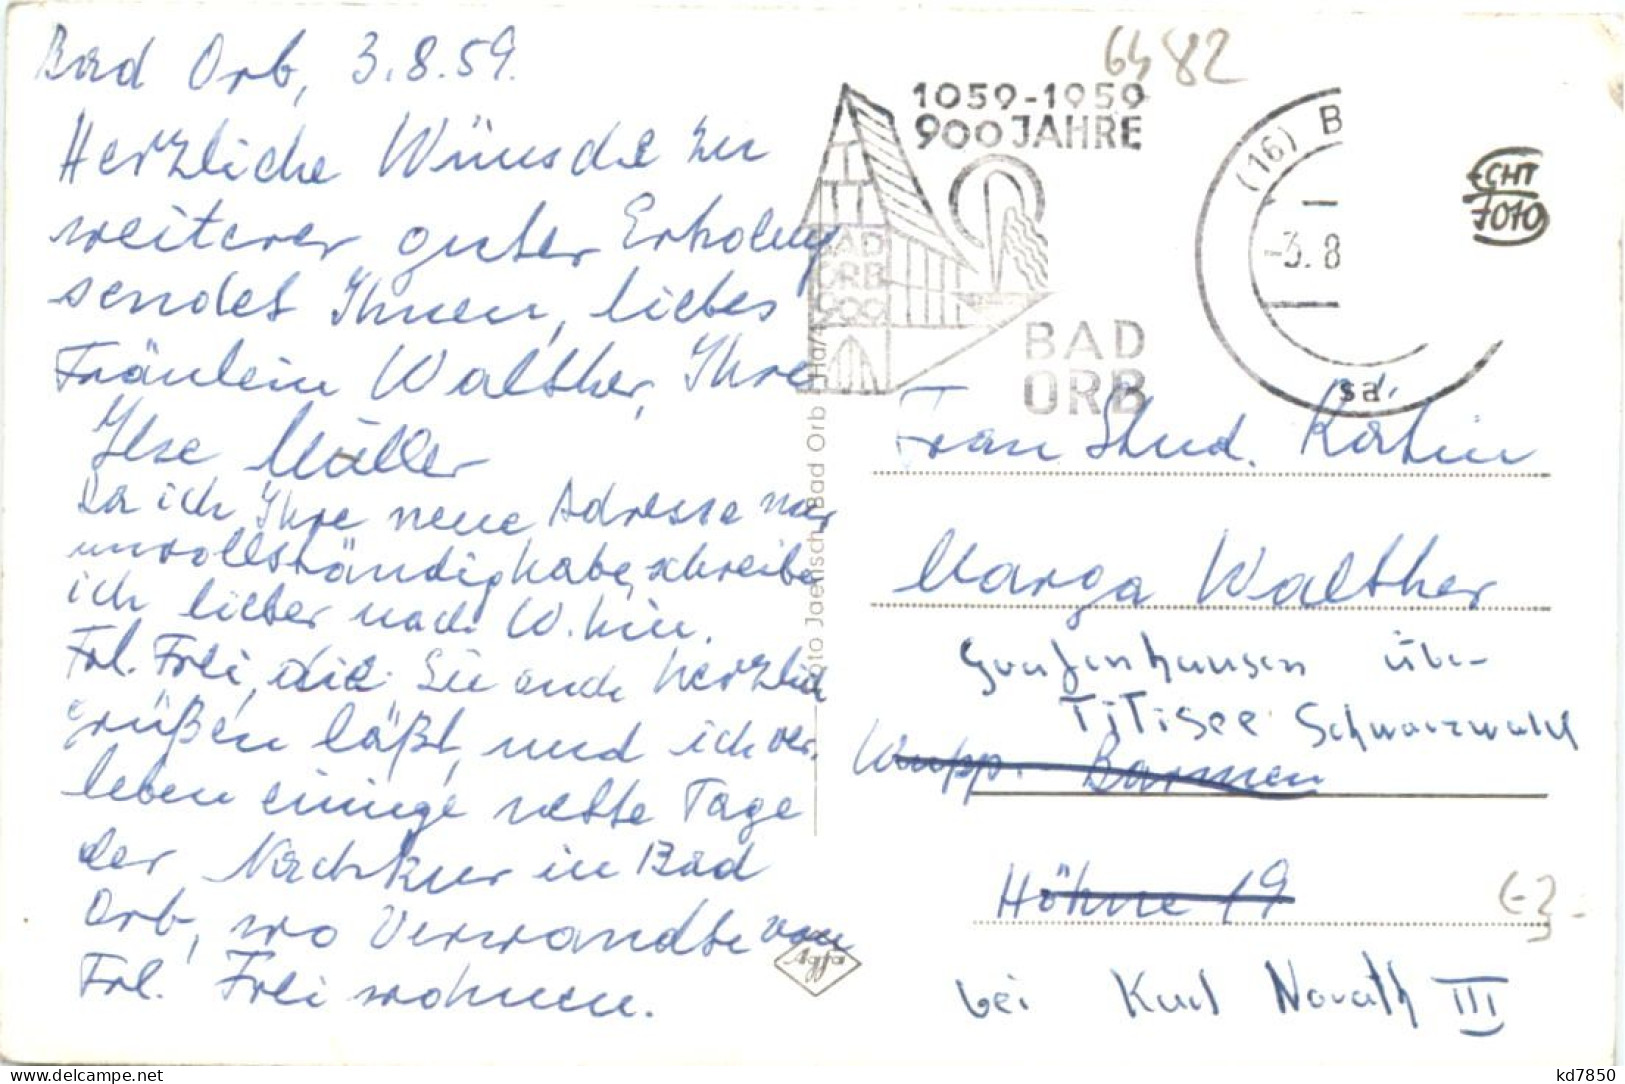 Bad Orb, 3.8.59.
Herzliche Wünsche zu
weiterer guter Erholung
sendet Ihnen, liebes
Fräulein Walther, Ihre
Ilse Müller
Da ich Ihre neue Adresse nur
unvollständig habe, schreibe
ich lieber nach W. hin.
Frl. Frei, die Sie auch herzlich
grüßen läßt, und ich ver-
leben einige nette Tage
der Nachkur in Bad
Orb, wo Verwandte von
Frl. Frei wohnen.
6482
1059-1959
900 JAHRE
BAD
ORB
900
BAD
ORB
(16) B
-3. 8
sa
ECHT
FOTO
Foto Jaensch, Bad Orb
Agfa
Frau Stud. Rätin
Marga Walther
Grafenhausen über
Titisee Schwarzwald
Wupp. Barmen
Höhne 19
bei Karl III
kd7850